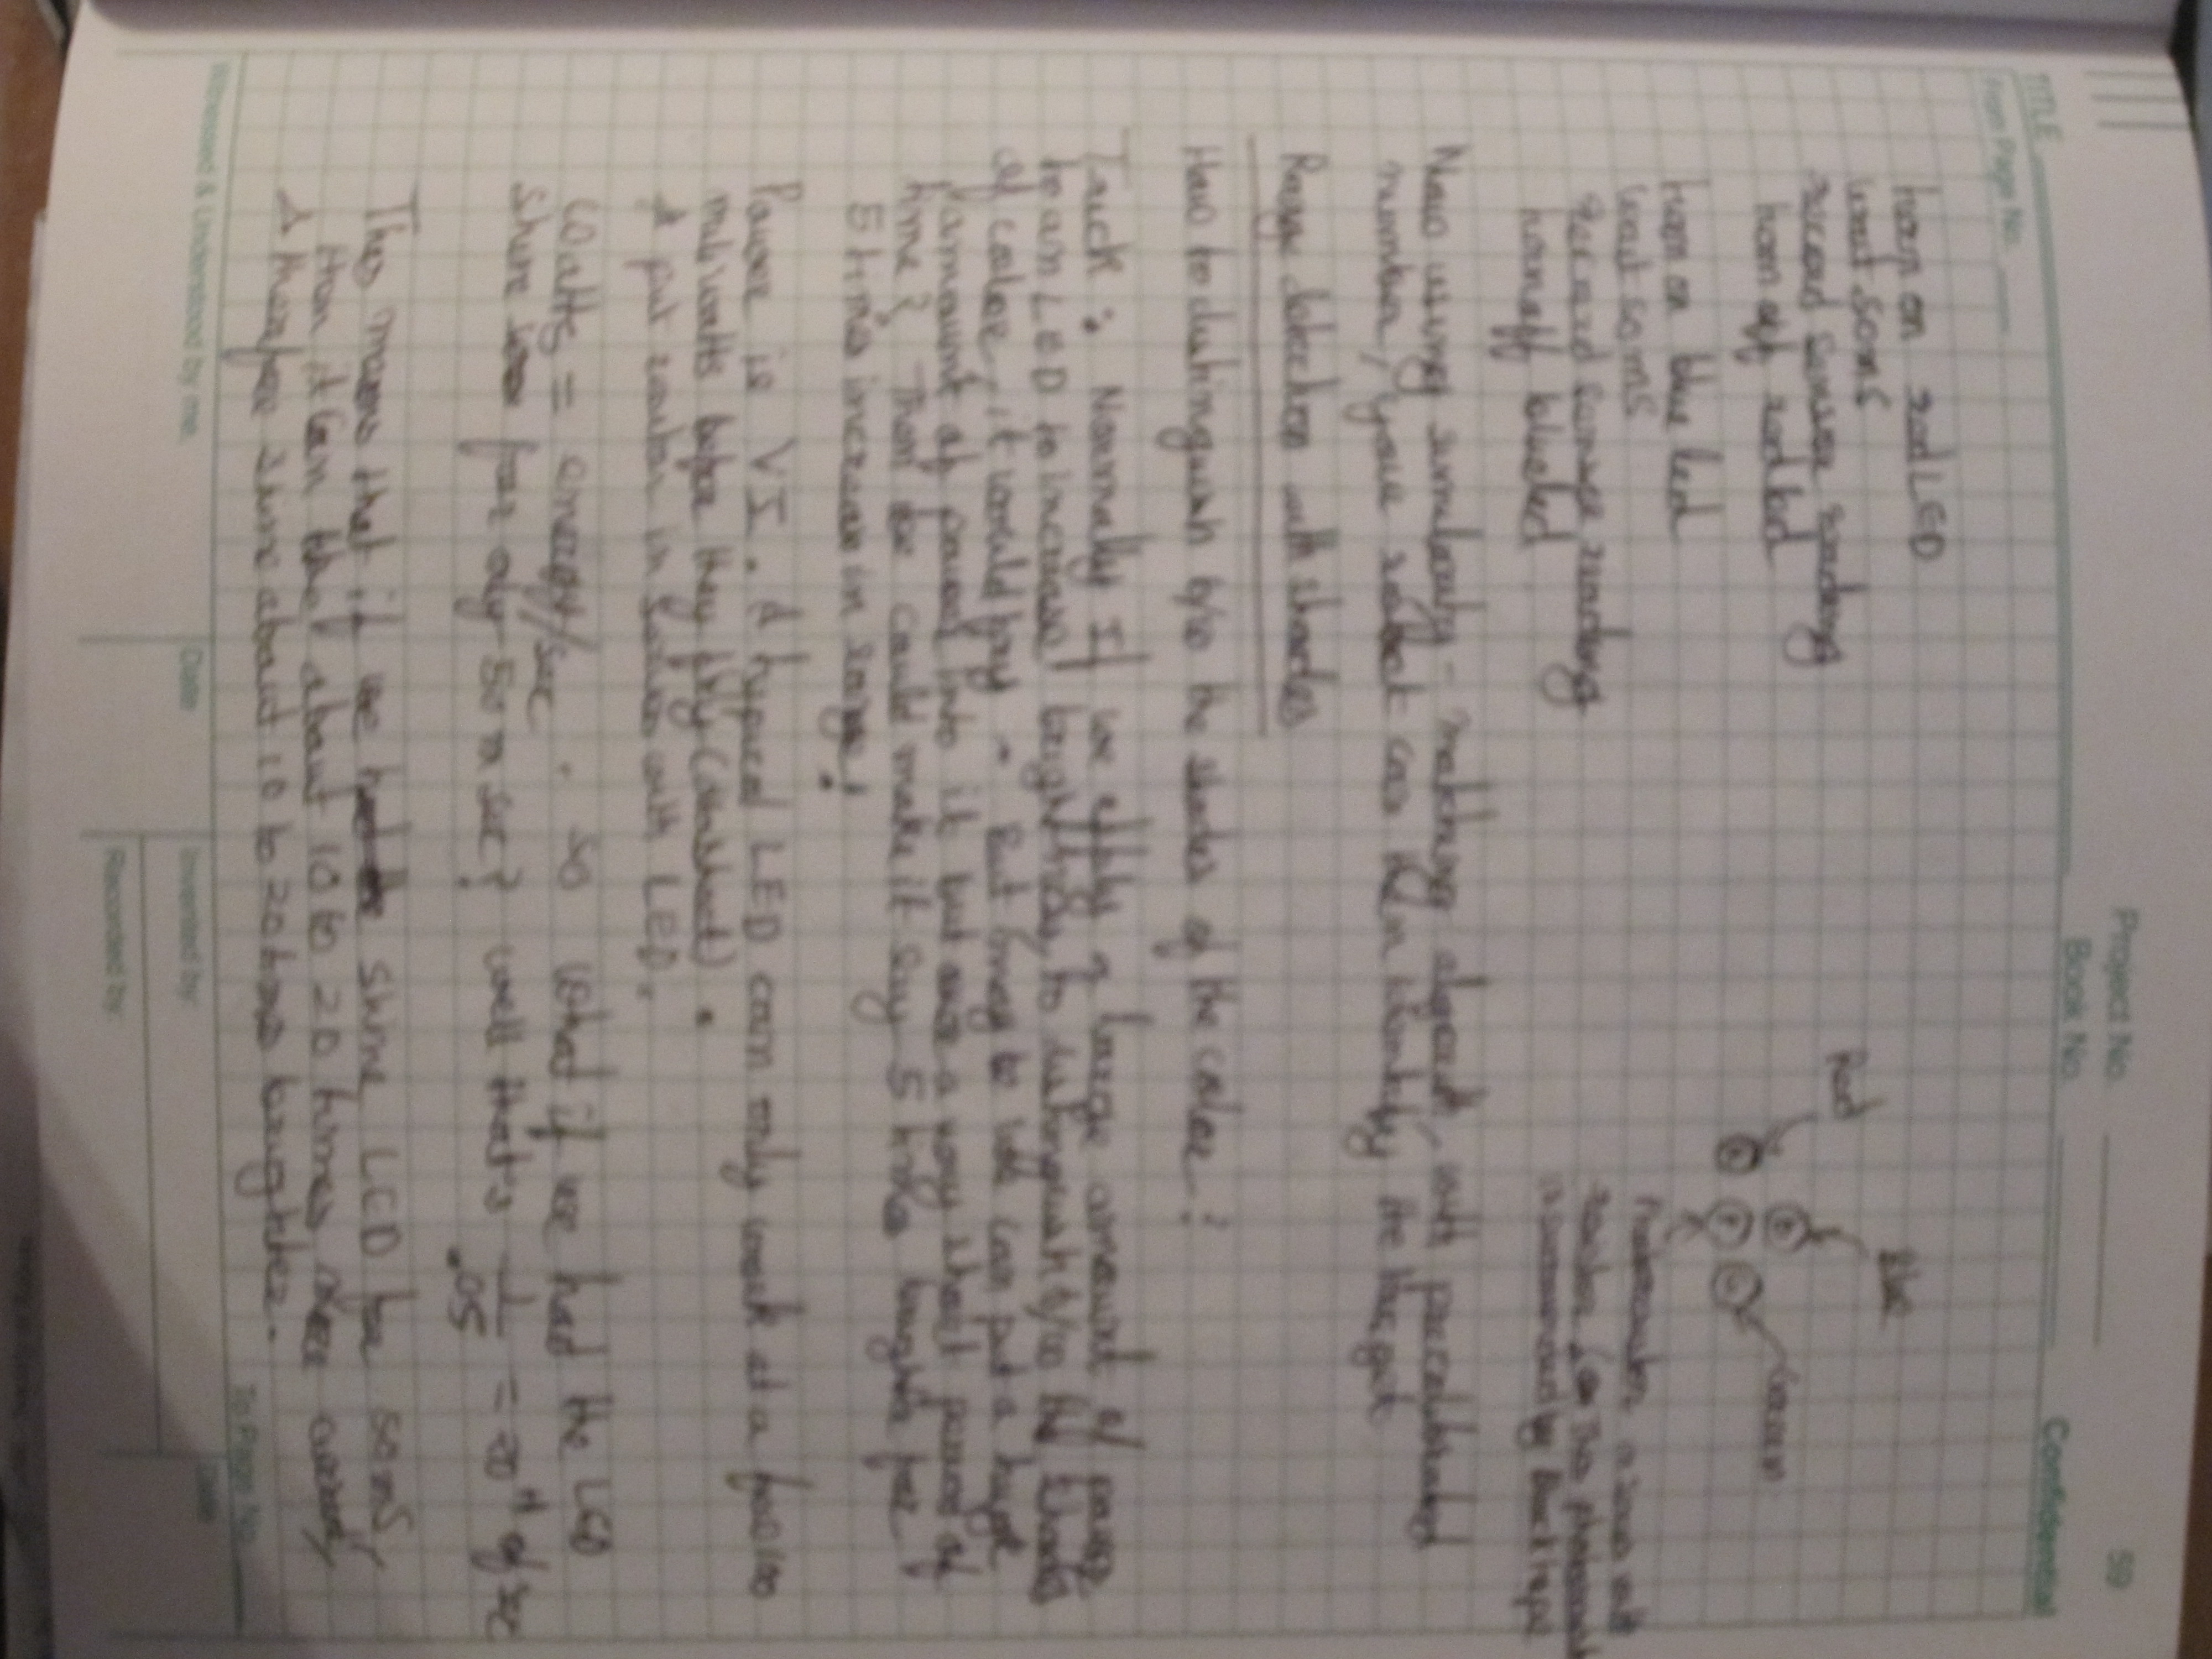 59
Project No.
Book No.
Confidential
TITLE
From Page No.
turn on red LED
wait 50ms
record sensor reading
turn off red led
turn on blue led
wait 50ms
record sensor reading
turn off blue led
Blue
Red
Green
is surrounded by black tape
Now using similarity - matching with precalibrated
number, your robot can then identify the target
Range detection with shades
How to distinguish b/w the shades of the color ?
Trick : Normally If we apply a large amount of power
to an LED to increase brightness to distinguish b/w the shades
of color, it would fry . But we can put a huge
amount of power into it but over a very short period of
time ? Then we could make it say 5 times brighter for
5 times increase in range !
Power is VI . A typical LED can only work at a few 100
milliwatts before they fry (constant) .
& put resistor in series with LED.
watts = energy/sec . So what if we had the LED
shine for only 50 m sec ? well that's 1/.05 = 20th of sec
This means that if we shine LED for 50ms,
then it can take about 10 to 20 times more current,
& therefore shine about 10 to 20 times brighter .
To Page No.
Witnessed & Understood by me,
Date
Invented by:
Date
Recorded by: